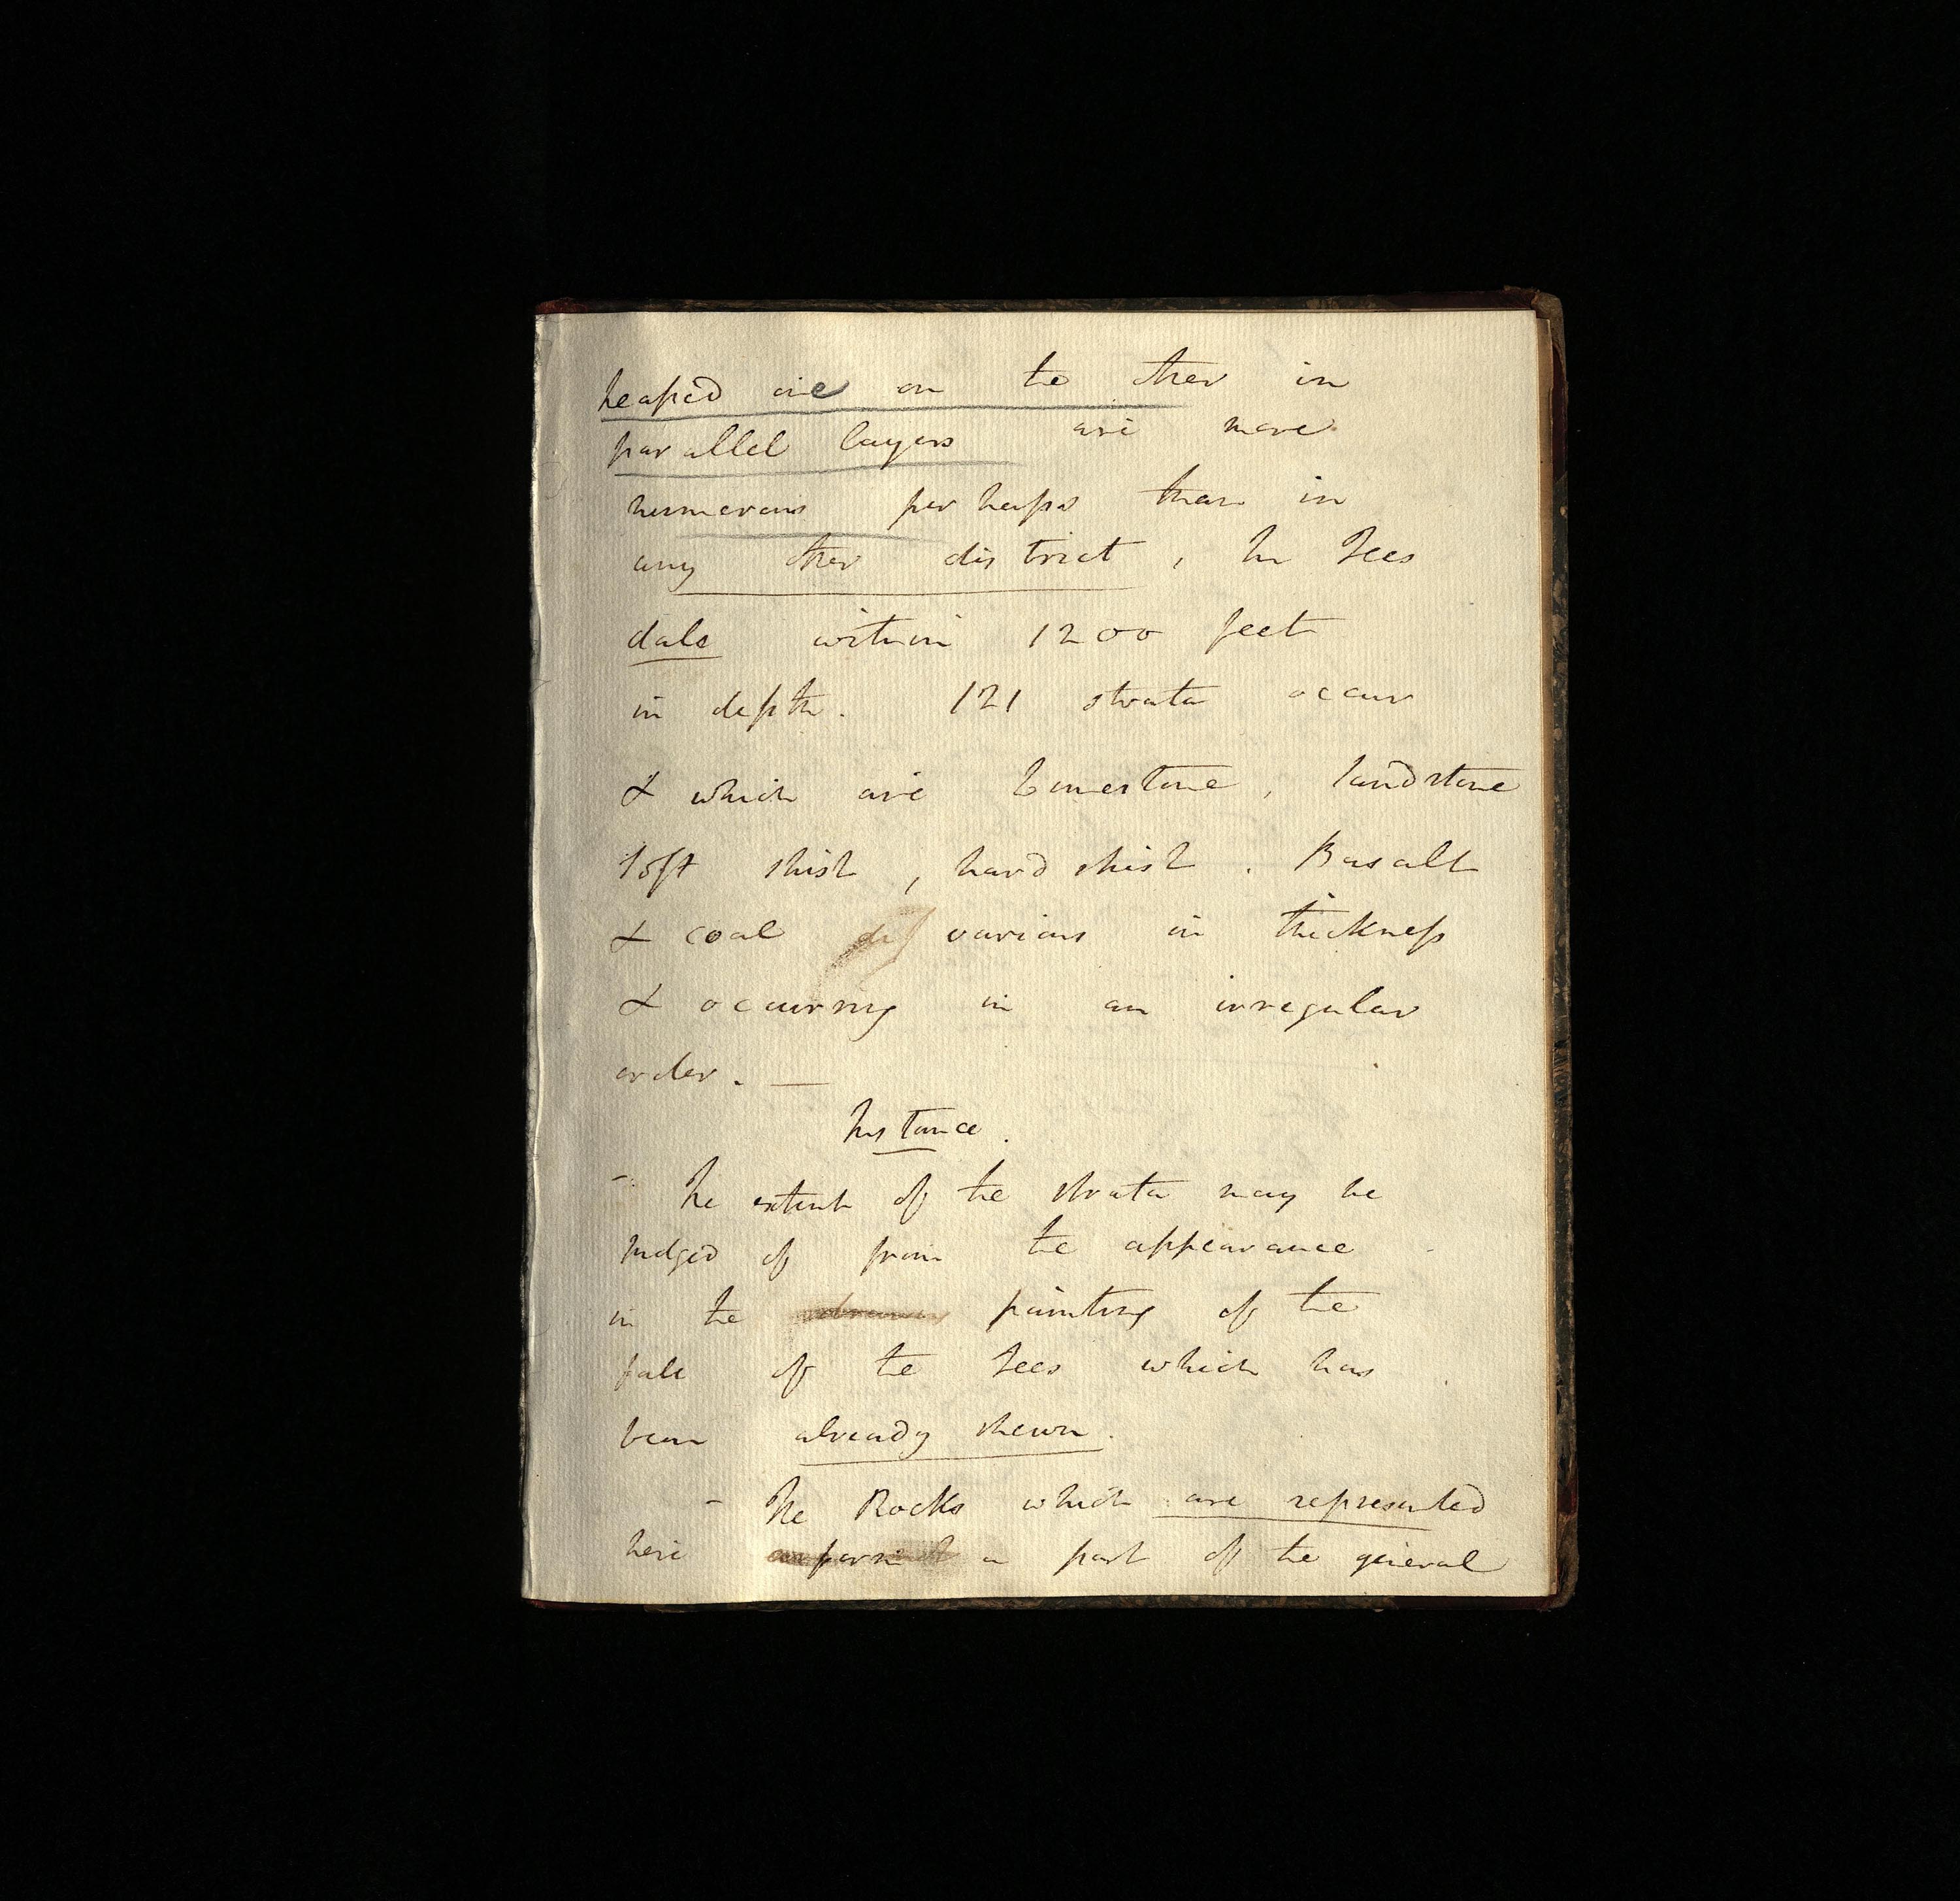 heaped one on the other in
parallel layers are more
numerous perhaps than in
any other district, In Tees
dale within 1200 feet
in depth. 121 strata occur
& which are Limestone, sandstone
soft shist, hard shist. Basalt
& coal various in thickness
& occurring in an irregular
order. —
Instance.
- The extent of the strata may be
judged of from the appearance
in the drawing painting of the
fall of the Tees which has
been already shewn.
- The Rocks which are represented
here form a part of the general